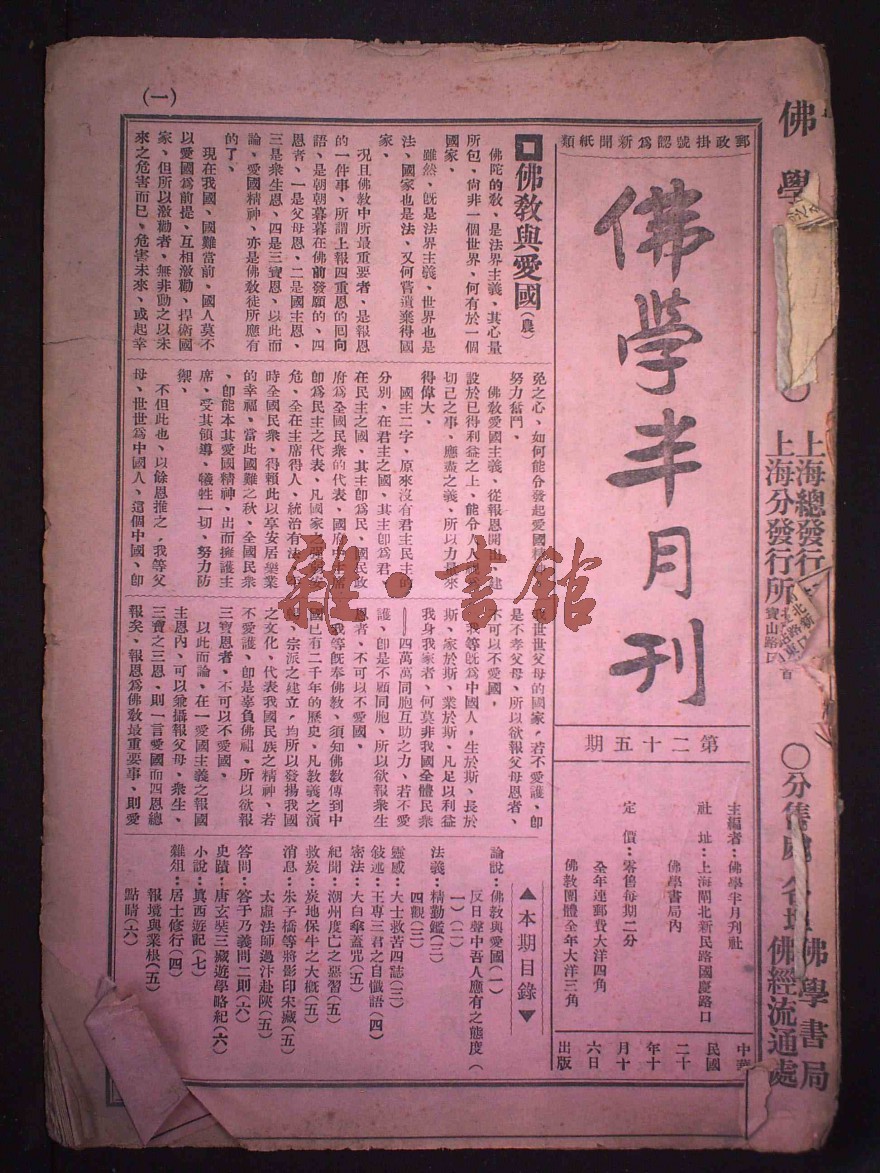 (一)
郵政掛號認爲新聞紙類
佛學半月刊
第二十五期
主編者：佛學半月刊社
社 址：上海閘北新民路國慶路口
佛學書局內
定 價：零售每期二分
全年連郵費大洋四角
佛教團體全年大洋三角
中華
民國
二十
年十
月十
六日
出版
佛教與愛國(農)
佛陀的敎、是法界主義、其心量
所包、尙非一個世界、何有於一個
國家、
雖然、旣是法界主義、世界也是
法、國家也是法、又何嘗遺棄得國
家、
況且佛敎中所最重要者、是報恩
的一件事、所謂上報四重恩的囘向
語、是朝朝暮暮在佛前發願的、四
恩者、一是父母恩、二是國主恩、
三是衆生恩、四是三寶恩、以此而
論、愛國精神、亦是佛敎徒所應有
的了、
現在我國、國難當前、國人莫不
以愛國爲前提、互相激勸、捍衛國
家、但所以激勸者、無非動之以未
來之危害而已、危害未來、或起幸
免之心、如何能令發起愛國精神
努力奮鬥、
佛敎愛國主義、從報恩開出、建
設於已得利益之上、能令人人
切己之事、應盡之義、所以力量來
得偉大、
國主二字、原來沒有君主民主的
分別、在君主之國、其主卽爲君、
在民主之國、其主卽爲民、國民政
府爲全國民衆的代表、國府中主席
卽爲民主之代表、凡國家之安
危、全在主席得人、統治有法、
時全國民衆、得賴此以享安居樂業
的幸福、當此國難之秋、全國民衆
、卽能本其愛國精神、出而擁護主
席、受其領導、犧牲一切、努力防
禦、
不但此也、以餘恩推之、我等父
母、世世爲中國人、這個中國、卽
世世父母的國家、若不愛護、卽
是不孝父母、所以欲報父母恩者、
不可以不愛國、
我等旣爲中國人、生於斯、長於
斯、家於斯、業於斯、凡足以利益
我身我家者、何莫非我國全體民衆
——四萬萬同胞互助之力、若不愛
護、卽是不顧同胞、所以欲報衆生
恩者、不可以不愛國、
我等旣奉佛敎、須知佛敎傳到中
國已有二千年的歷史、凡敎義之演
宗派之建立、均所以發揚我國
之文化、代表我國民族之精神、若
不愛護、卽是辜負佛祖、所以欲報
三寶恩者、不可以不愛國、
以此而論、在一愛國主義之報國
主恩內、可以兼攝報父母、衆生、
三寶之三恩、則一言愛國而四恩總
報矣、報恩爲佛敎最重要事、則愛
▲本期目錄▼
論說：佛敎與愛國(一)
反日聲中吾人應有之態度(
一)(二)
法義：精勤鑑(三)
四觀(三)
靈感：大士救苦四誌(三)
敍述：王専三君之自懺語(四)
密法：大白傘蓋咒(五)
紀聞：潮州度亡之惡習(五)
救炭：炭地保牛之大概(五)
消息：朱子橋等將影印宋藏(五)
太虛法師過汴赴陝(五)
答問：答于乃義問二則(六)
史蹟：唐玄奘三藏遊學略紀(六)
小說：眞西遊記(七)
雜俎：居士修行(四)
報境與業根(五)
點睛(六)
佛學
上海總發行
上海分發行所
寶山路口
○分售處
佛學書局
佛經流通處
雜·書館